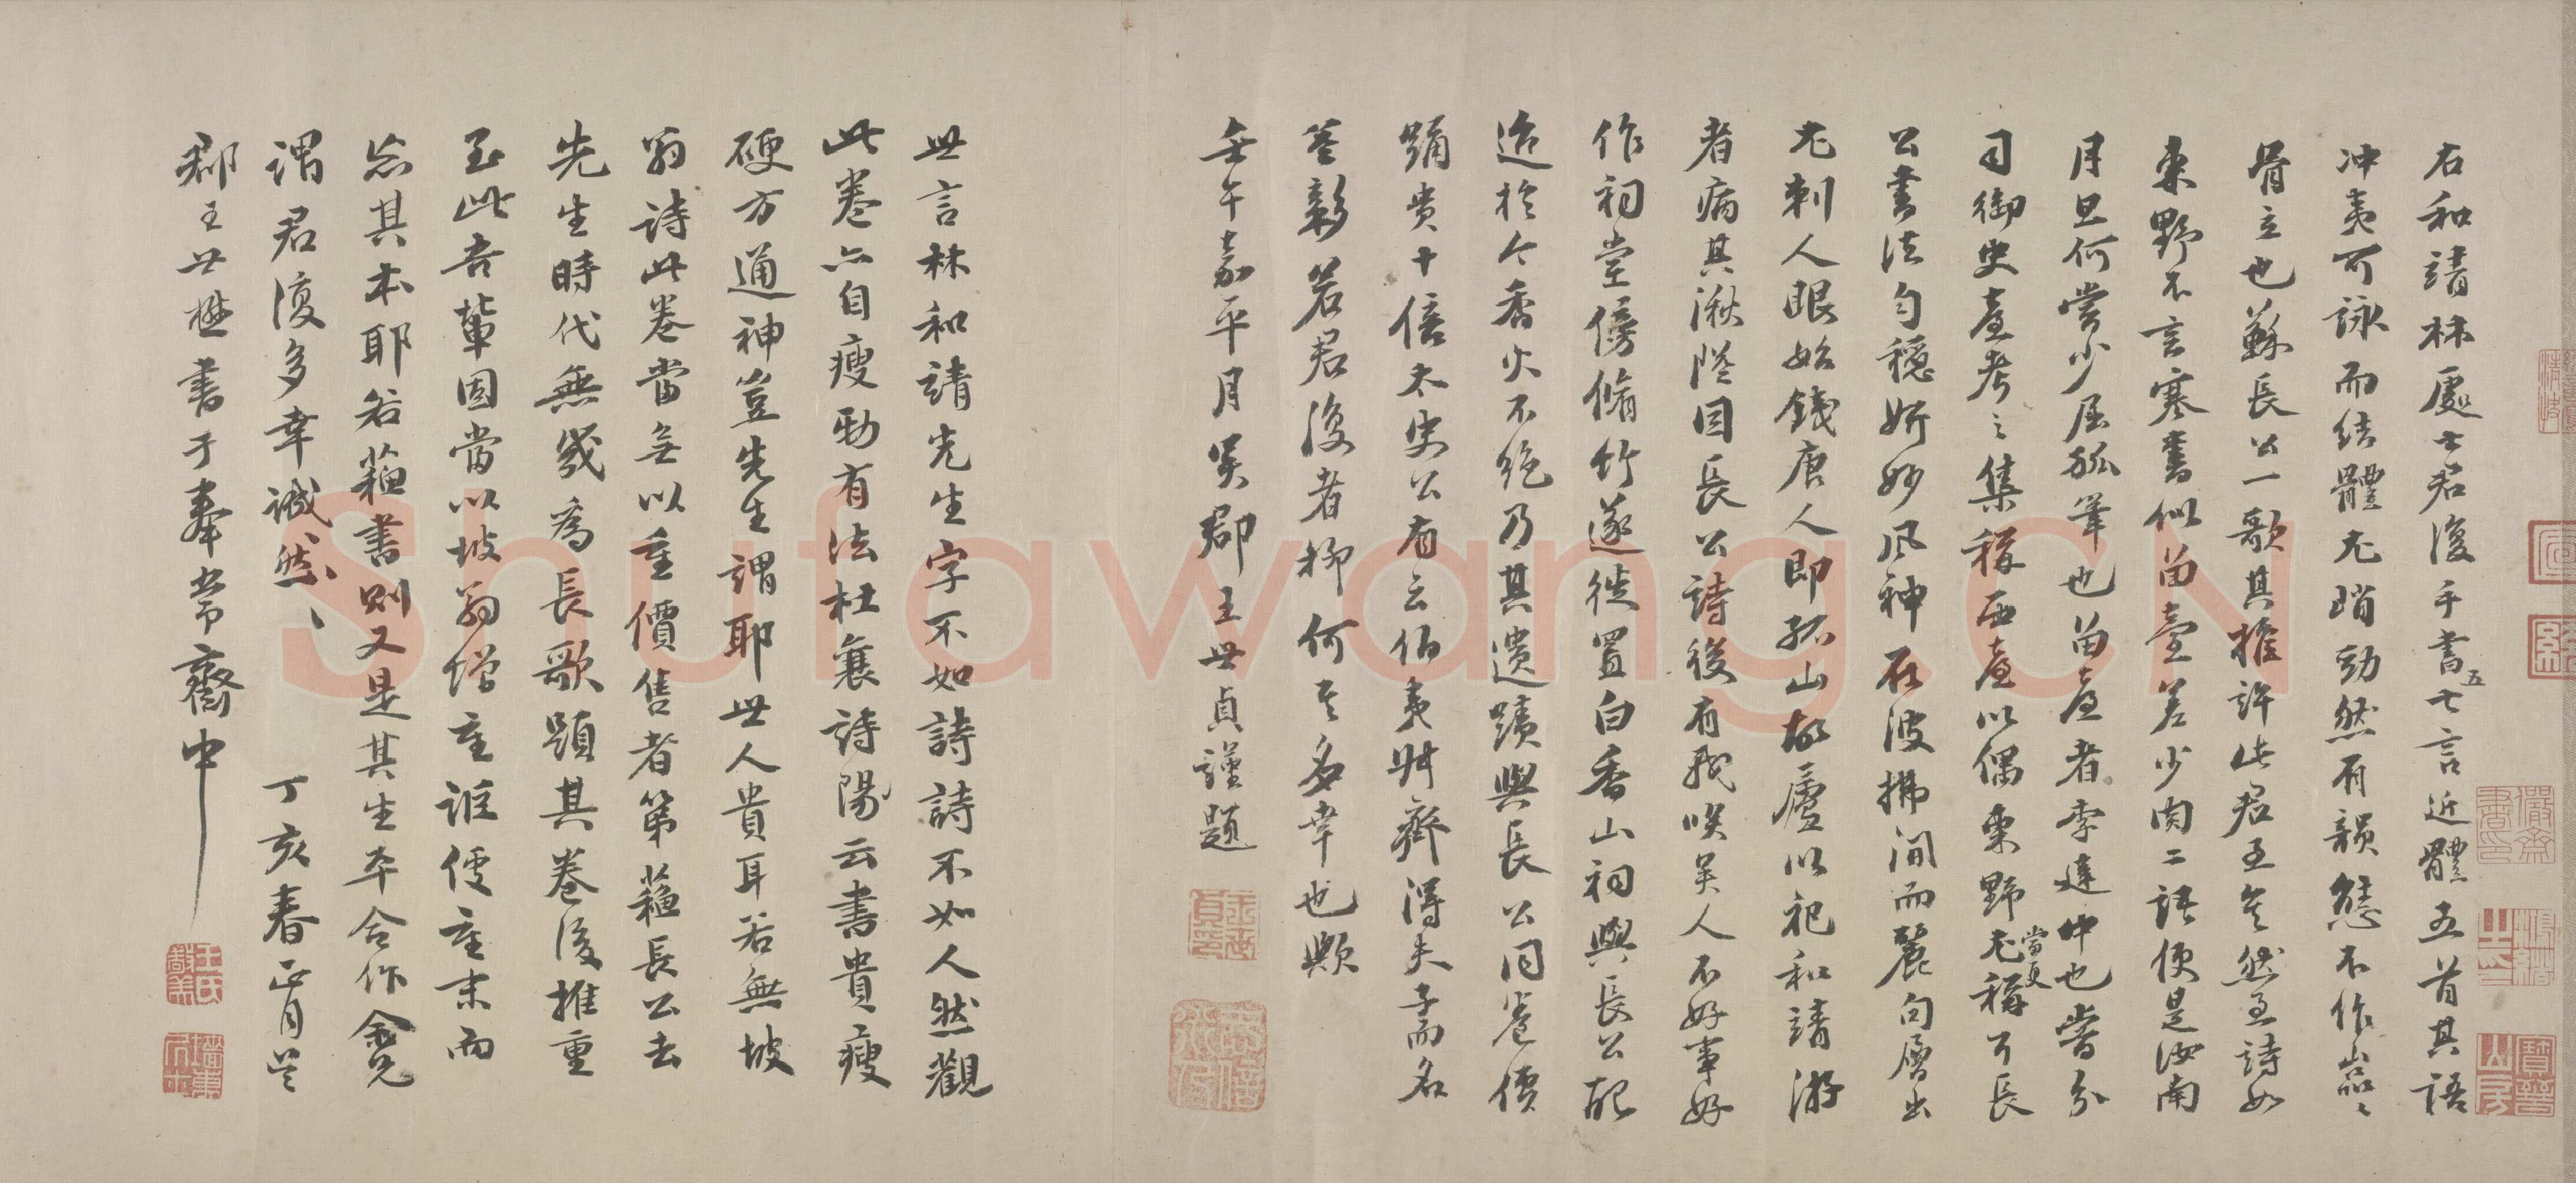 右和靖林處士君復手書五七言近體五首其語
冲夷可詠而結體尤峭勁然有韻態不作嵓嵓
骨立也蘇長公一歌其推許此君至矣然至詩如
東野不言寒書似留臺差少肉二語便是汝南
月旦何嘗少屈孤筆也留臺者李建中也嘗分
司御史臺考之集稱西臺以偶東野尤當更稱耳長
公書法勻穩妍妙風神在波拂間而麗句層出
尤刺人眼始錢唐人即孤山故廬以祀和靖游
者病其湫隘因長公詩後有我笑吳人不好事好
作祠堂傍脩竹遂徙置白香山祠與長公配
迨於今香火不絕乃其遺蹟與長公同卷價
踊貴十倍太史公有云伯夷叔齊得夫子而名
益彰若君復者抑何其多幸也歟
壬午嘉平月吳郡王世貞謹題
世言林和靖先生字不如詩詩不如人然觀
此卷亦自瘦勁有法杜襄詩陽云書貴瘦
硬方通神豈先生謂耶世人貴耳若無坡
翁詩此卷當無以重價售者第蘇長公去
先生時代無幾為長歌題其卷後推重
至此吾輩固當以坡翁增重詎僅重末而
忘其本耶若蘇書則又是其生平合作處
謂君復多幸誠然誠然 丁亥春正月吳
郡王世懋書于奉常齋中
Shufawang.CN